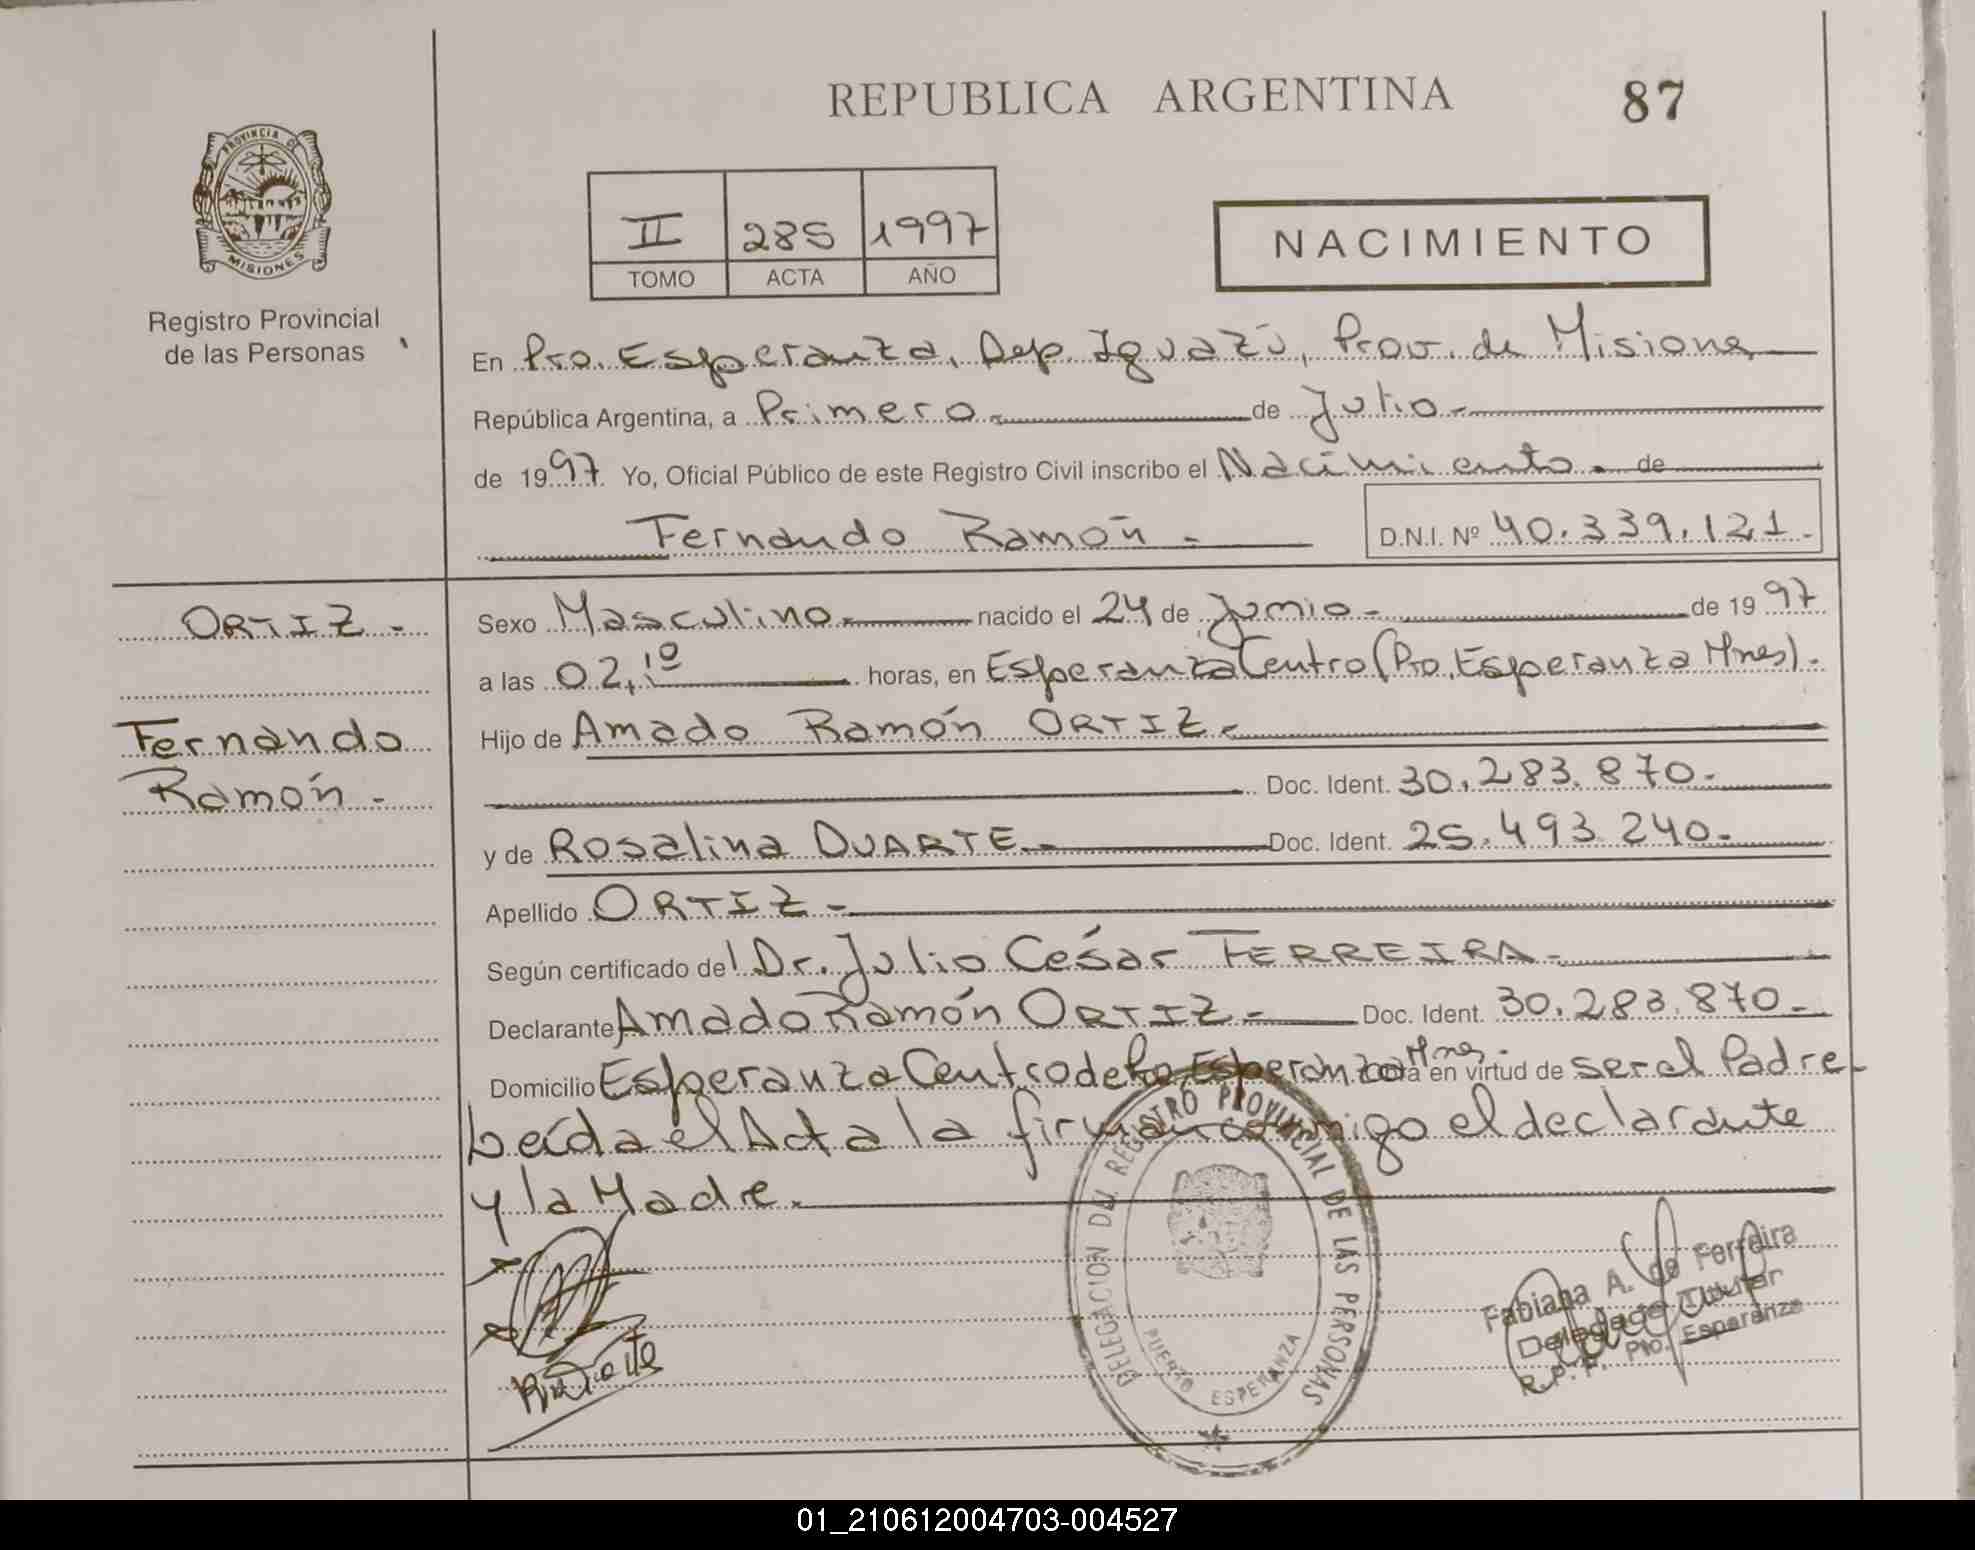 REPUBLICA ARGENTINA
87
PROVINCIA DE
MISIONES
Registro Provincial
de las Personas
II 285 1997
TOMO ACTA AÑO
NACIMIENTO
En Pto. Esperanza, Dep. Iguazú, Prov. de Misiones
República Argentina, a Primero.- de Julio.-
de 1997 Yo, Oficial Público de este Registro Civil inscribo el Nacimiento. de
Fernando Ramón.- D.N.I. Nº 40.339.121.-
ORTIZ.-
Fernando
Ramón.-
Sexo Masculino.- nacido el 24 de Junio.- de 1997
a las 02,10 horas, en Esperanza Centro (Pto. Esperanza Mnes).-
Hijo de Amado Ramón ORTIZ.-
Doc. Ident. 30.283.870.-
y de Rosalina DUARTE.- Doc. Ident. 25.493.240.-
Apellido ORTIZ.-
Según certificado del Dr. Julio César FERREIRA.-
Declarante Amado Ramón ORTIZ.- Doc. Ident. 30.283.870.-
Domicilio Esperanza Centro de Pto. Esperanza Mnes.- en virtud de ser el Padre
Leída el Acta la firman conmigo el declarante
y la Madre.
DELEGACION DEL REGISTRO PROVINCIAL DE LAS PERSONAS
PUERTO ESPERANZA
Fabiana A. de Ferreira
Delegado Titular
R.P.P. Pto. Esperanza
01_210612004703-004527